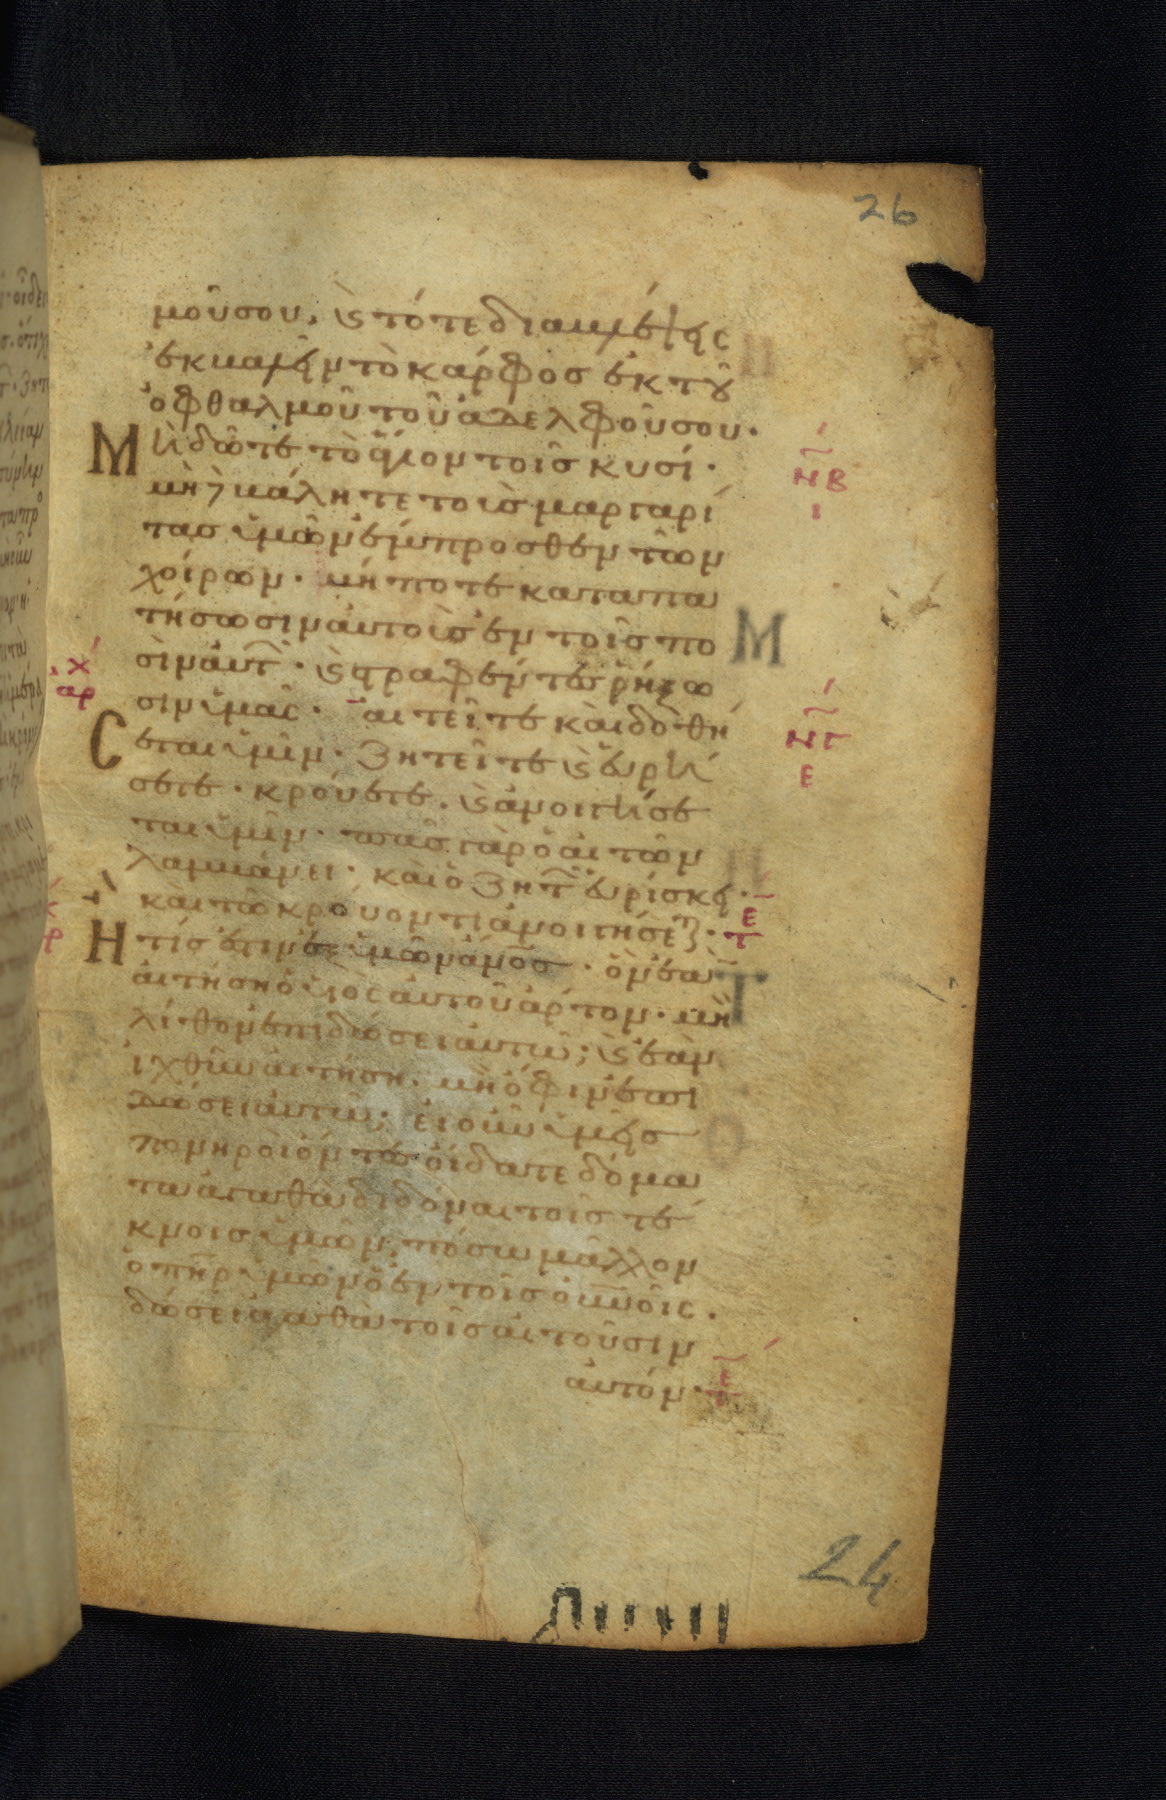 26
μοῦ σου, ϗ τότε διαβλέψεις
ἐκβαλεῖν τὸ κάρφος ἐκ τοῦ
ὀφθαλμοῦ τοῦ ἀδελφοῦ σου·
Μὴ δῶτε τὸ ἅγιον τοῖς κυσί·
μὴ βάλητε τοὺς μαργαρί
τας ὑμῶν ἔμπροσθεν τῶν
χοίρων· μή ποτε καταπα
τήσωσιν αὐτοὺς ἐν τοῖς πο
σὶν αὐτ· ϗ στραφέντες ῥήξω
σιν ὑμᾶς· αἰτεῖτε καὶ δοθή
Σεται ὑμῖν· ζητεῖτε ϗ εὑρή
σετε· κρούετε, ϗ ἀνοιγήσε
ται ὑμῖν· πᾶς γὰρ ὁ αἰτῶν
λαμβάνει· καὶ ὁ ζητ εὑρίσκει·
καὶ τῶ κρούοντι ἀνοιγήσετ·
Ἢ τίς ἐστιν ἐξ ὑμῶν ἀνος· ὃν ἐὰν
αἰτήση ὁ υἱὸς αὐτοῦ ἄρτον· μὴ
λίθον ἐπιδώσει αὐτῶ; ϗ ἐὰν
ἰχθὺν αἰτήση· μὴ ὄφιν ἐπι
δώσει αὐτῶ; εἰ οὖν ὑμεῖς
πονηροὶ ὄντες οἴδατε δόμα
τα ἀγαθὰ διδόναι τοῖς τέ
κνοις ὑμῶν, πόσω μᾶλλον
ὁ πηρ ὑμῶν ὁ ἐν τοῖς οὐνοῖς.
δώσει ἀγαθὰ τοῖς αἰτοῦσιν
αὐτόν·
24